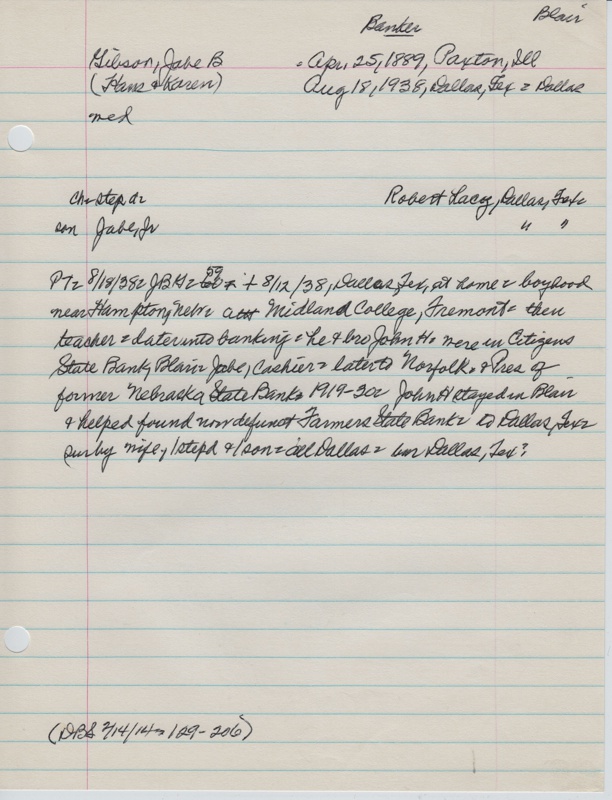 Banker
Blair
Gibson, Jabe B = Apr. 25, 1889, Paxton, Ill
(Hans & Karen) Aug 18, 1938, Dallas, Tex = Dallas
med
Ch= step d= Robert Lacey, Dallas, Tex=
son Jabe, Jr " "
PT= 8/18/38= JBG= 59 = + 8/12/38, Dallas, Tex, at home = boyhood
near Hampton, Nebr = att Midland College, Fremont = then
teacher = later into banking = he & bro John H. were in Citizens
State Bank, Blair = Jabe, Cashier = later to Norfolk. & Pres of
former Nebraska State Bank = 1919-30= John H stayed in Blair
& helped found now defunct Farmers State Bank = to Dallas, Tex=
sur by wife, 1 step d & 1 son = all Dallas = bur Dallas, Tex?
(DBS 2/14/14= 129-206)